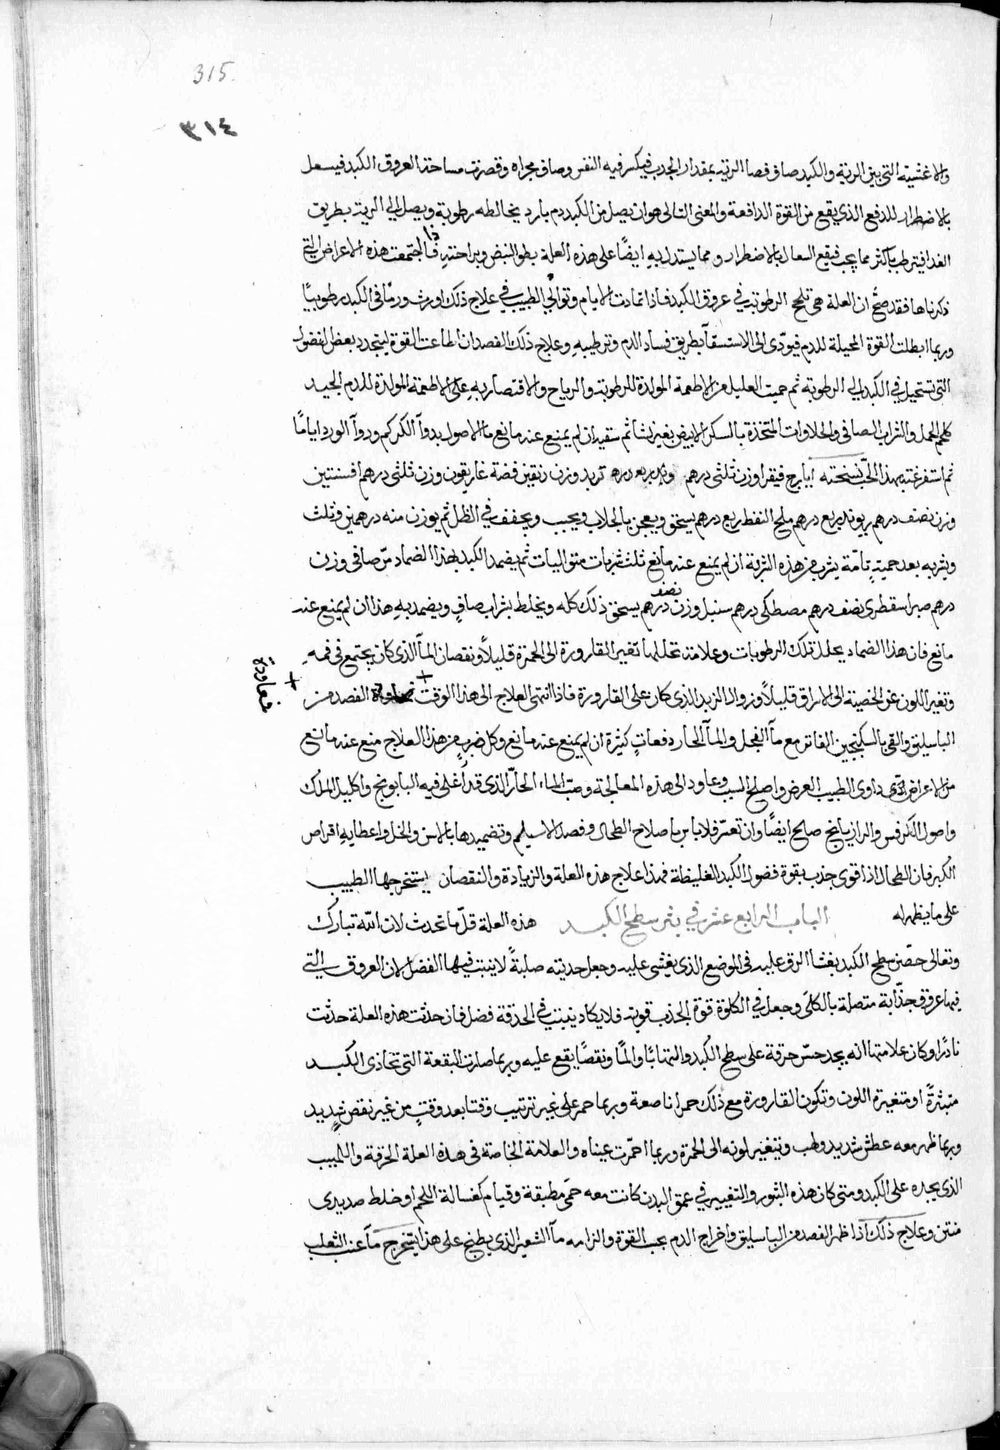 315
٣١٤
والاغشية التى بين الرية والكبد ضاق فضا الرية بمقدار الجذب فيكسر فيه النفس وضاق مجراه وقصرت مساحة العروق الكبد فيسعل
بالاضطرار للدفع الذى يقع من القوة الدافعة والمعنى الثانى هو ان يصل من الكبد دم بارد يخالطه رطوبة ويصل الى الرية بطريق
الغذا فيترطب باكثر مما يجب فيقع السعال بالاضطرار ومما يستدل به ايضًا على هذه العلة بطو النبض وبراحته فاذا اجتمعت هذه الاعراض التى
ذكرناها فقد صح ان العلة هى تلحج الرطوبة فى عروق الكبد فاذا تمادت الايام وتوانى الطبيب فى علاج ذلك اورث ورمًا فى الكبد رطوبيًا
وربما ابطلت القوة المحيلة للدم فيودى الى الاستسقآ بطريق فساد الدم وترطيبه وعلاج ذلك الفصد ان اطاعت القوة ليتجرد بعض الفضول
التى تستحيل فى الكبد الى الرطوبة ثم حميت العليل من الاطعمة المولدة للرطوبة والرياح والاقتصار به على الاطعمة المولدة للدم الجيد
كلحم الحمل والشراب الصافى والحلاوات المتخذة بالسكر الابيض بغير نشا ثم سقيه ان لم يمنع عنه مانع ما الاصول بدوآ الكركم ودوآ الورد اياما
ثم استفرغته بهذا الحب نسخته ايارج فيقرا وزن ثلثى درهم وزن درهم تربد وزن دنقين فضة غاريقون وزن ثلثى درهم افسنتين
وزن نصف درهم ريوند ربع درهم ملح النفط ربع درهم يسحق ويعجن بالجلاب ويحبب ويجفف فى الظل ثم يوزن منه درهمين وثلث
ويشربه بعد حمية تامة يشرب من هذه الشربة ان لم يمنع عنه مانع ثلث شربات متواليات ثم يضمد الكبد بهذا الضماد مرّ صافى وزن
درهم صبر اسقطرى نصف درهم مصطكى درهم سنبل وزن نصف درهم يسحق ذلك كله ويخلط بشراب صافٍ ويضمد به هذا ان لم يمنع عنه
مانع فان هذا الضماد يحلل تلك الرطوبات وعلامة تحللها تغير القارورة الى الحمرة قليلاً ونقصان المآ الذى كان يجتمع فى فمه
وتغير اللون عن الخضية الى الاراق قليلاً وزوال الزبد الذى كان على القارورة فاذا انتهى العلاج الى هذا الوقت الفصد من
فمعاودة
الباسليق والقى بالسكنجبين الفاتر مع مآ الفجل والمآ الحار دفعات كثيرة ان لم يمنع عنه مانع وكل ضرب من هذا العلاج منع عنه مانع
من الاعراض داوى الطبيب العرض واصلح السبب وعاود الى هذه المعالجة وصبّ الماء الحارّ الذى قد اغلى فيه البابونج واكليل الملك
واصول الكرفس والرازيانج صالح ايضًا وان تعسّر فلا باس باصلاح الطحال وفصد الاسيلم وتضميدها بالاس والخل واعطايه اقراص
الكبر فان الطحال اذا قوى جذب بقوة فضول الكبد الغليظة فهذا علاج هذه العلة والزيادة والنقصان يستخرجها الطبيب
على ما يظهر له الباب الرابع عشر فى بثر سطح الكبد هذه العلة قلّ ما تحدث لان الله تبارك
وتعالى حصّن سطح الكبد بغشا الرق عليه فى الموضع الذى يغشى عليه وجعل حدبته صلبةً لا يثبت فيها الفضل لان العروق التى
فيها عروق جذّابة متصلة بالكلى وجعل فى الكلوة قوة الجذب قوية فلا يكاد يثبت فى الحدقة فضل فان حدثت هذه العلة حدثت
نادرًا وكان علامتها انه يجد حسّ حرقة على سطح الكبد والتهابًا والمًا ونقصًا يقع عليه وربما صارت البقعة التى تحاذى الكبد
متبثرةً او متغيرة اللون وتكون القارورة مع ذلك حمرا ناصعة وربما حمر على غير ترتيب وقتا بعد وقتٍ من غير نقص شديد
وربما ظهر معه عطش شديد ولهب وتتغير لونه الى الحمرة وربما احمرّت عيناه والعلامة الخاصة فى هذه العلة الحرقة واللهيب
الذى يجده على الكبد ومتى كان هذه البثور والتغيير فى عمق البدن كانت معه حمّى مطبقة وقيام كغسالة اللحم او خلط صديدى
منتن وعلاج ذلك اذا ظهر الفصد من الباسليق واخراج الدم بحسب القوة والزامه مآ الشعير الذى يطبخ على هذا يستخرج مآ عنب الثعلب